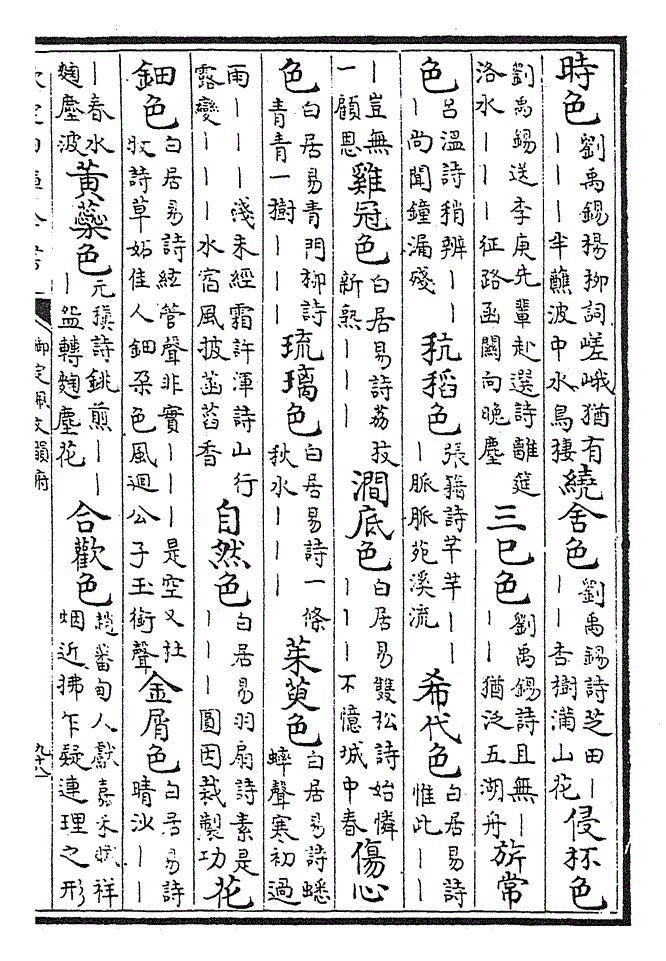 時色劉禹錫楊柳詞嵯峨猶有｜｜｜半蘸波中水鳥棲繞舍色劉禹錫詩芝田｜｜｜杏樹滿山花侵杯色
劉禹錫送李庚先輩赴選詩離筵洛水｜｜｜征路函關向晚塵三已色劉禹錫詩且無｜｜｜猶泛五湖舟旂常
色吕溫詩稍辨｜｜｜尚聞鐘漏殘秔稻色張籍詩芊芊｜｜｜脈脈苑溪流希代色白居易詩惟此｜｜
｜豈無一顧恩雞冠色白居易詩荔枝新熟｜｜｜澗底色白居易雙松詩始憐｜｜｜不憶城中春傷心
色白居易青門柳詩青青一樹｜｜｜琉璃色白居易詩一條秋水｜｜｜茱萸色白居易詩蟋蟀聲寒初過
雨｜｜｜淺未經霜許渾詩山行露變｜｜｜水宿風披菡萏香自然色白居易羽扇詩素是｜｜｜圓因裁製功花
鈿色白居易詩絃管聲非實｜｜｜是空又杜牧詩草妬佳人鈿朶色風迴公子玉銜聲金屑色白居易詩晴沙｜｜
｜春水麴塵波黃蘂色元稹詩銚煎｜｜｜盌轉麴塵花合歡色趙蕃甸人獻嘉禾賦祥烟近拂乍疑連理之形
御定佩文韻府